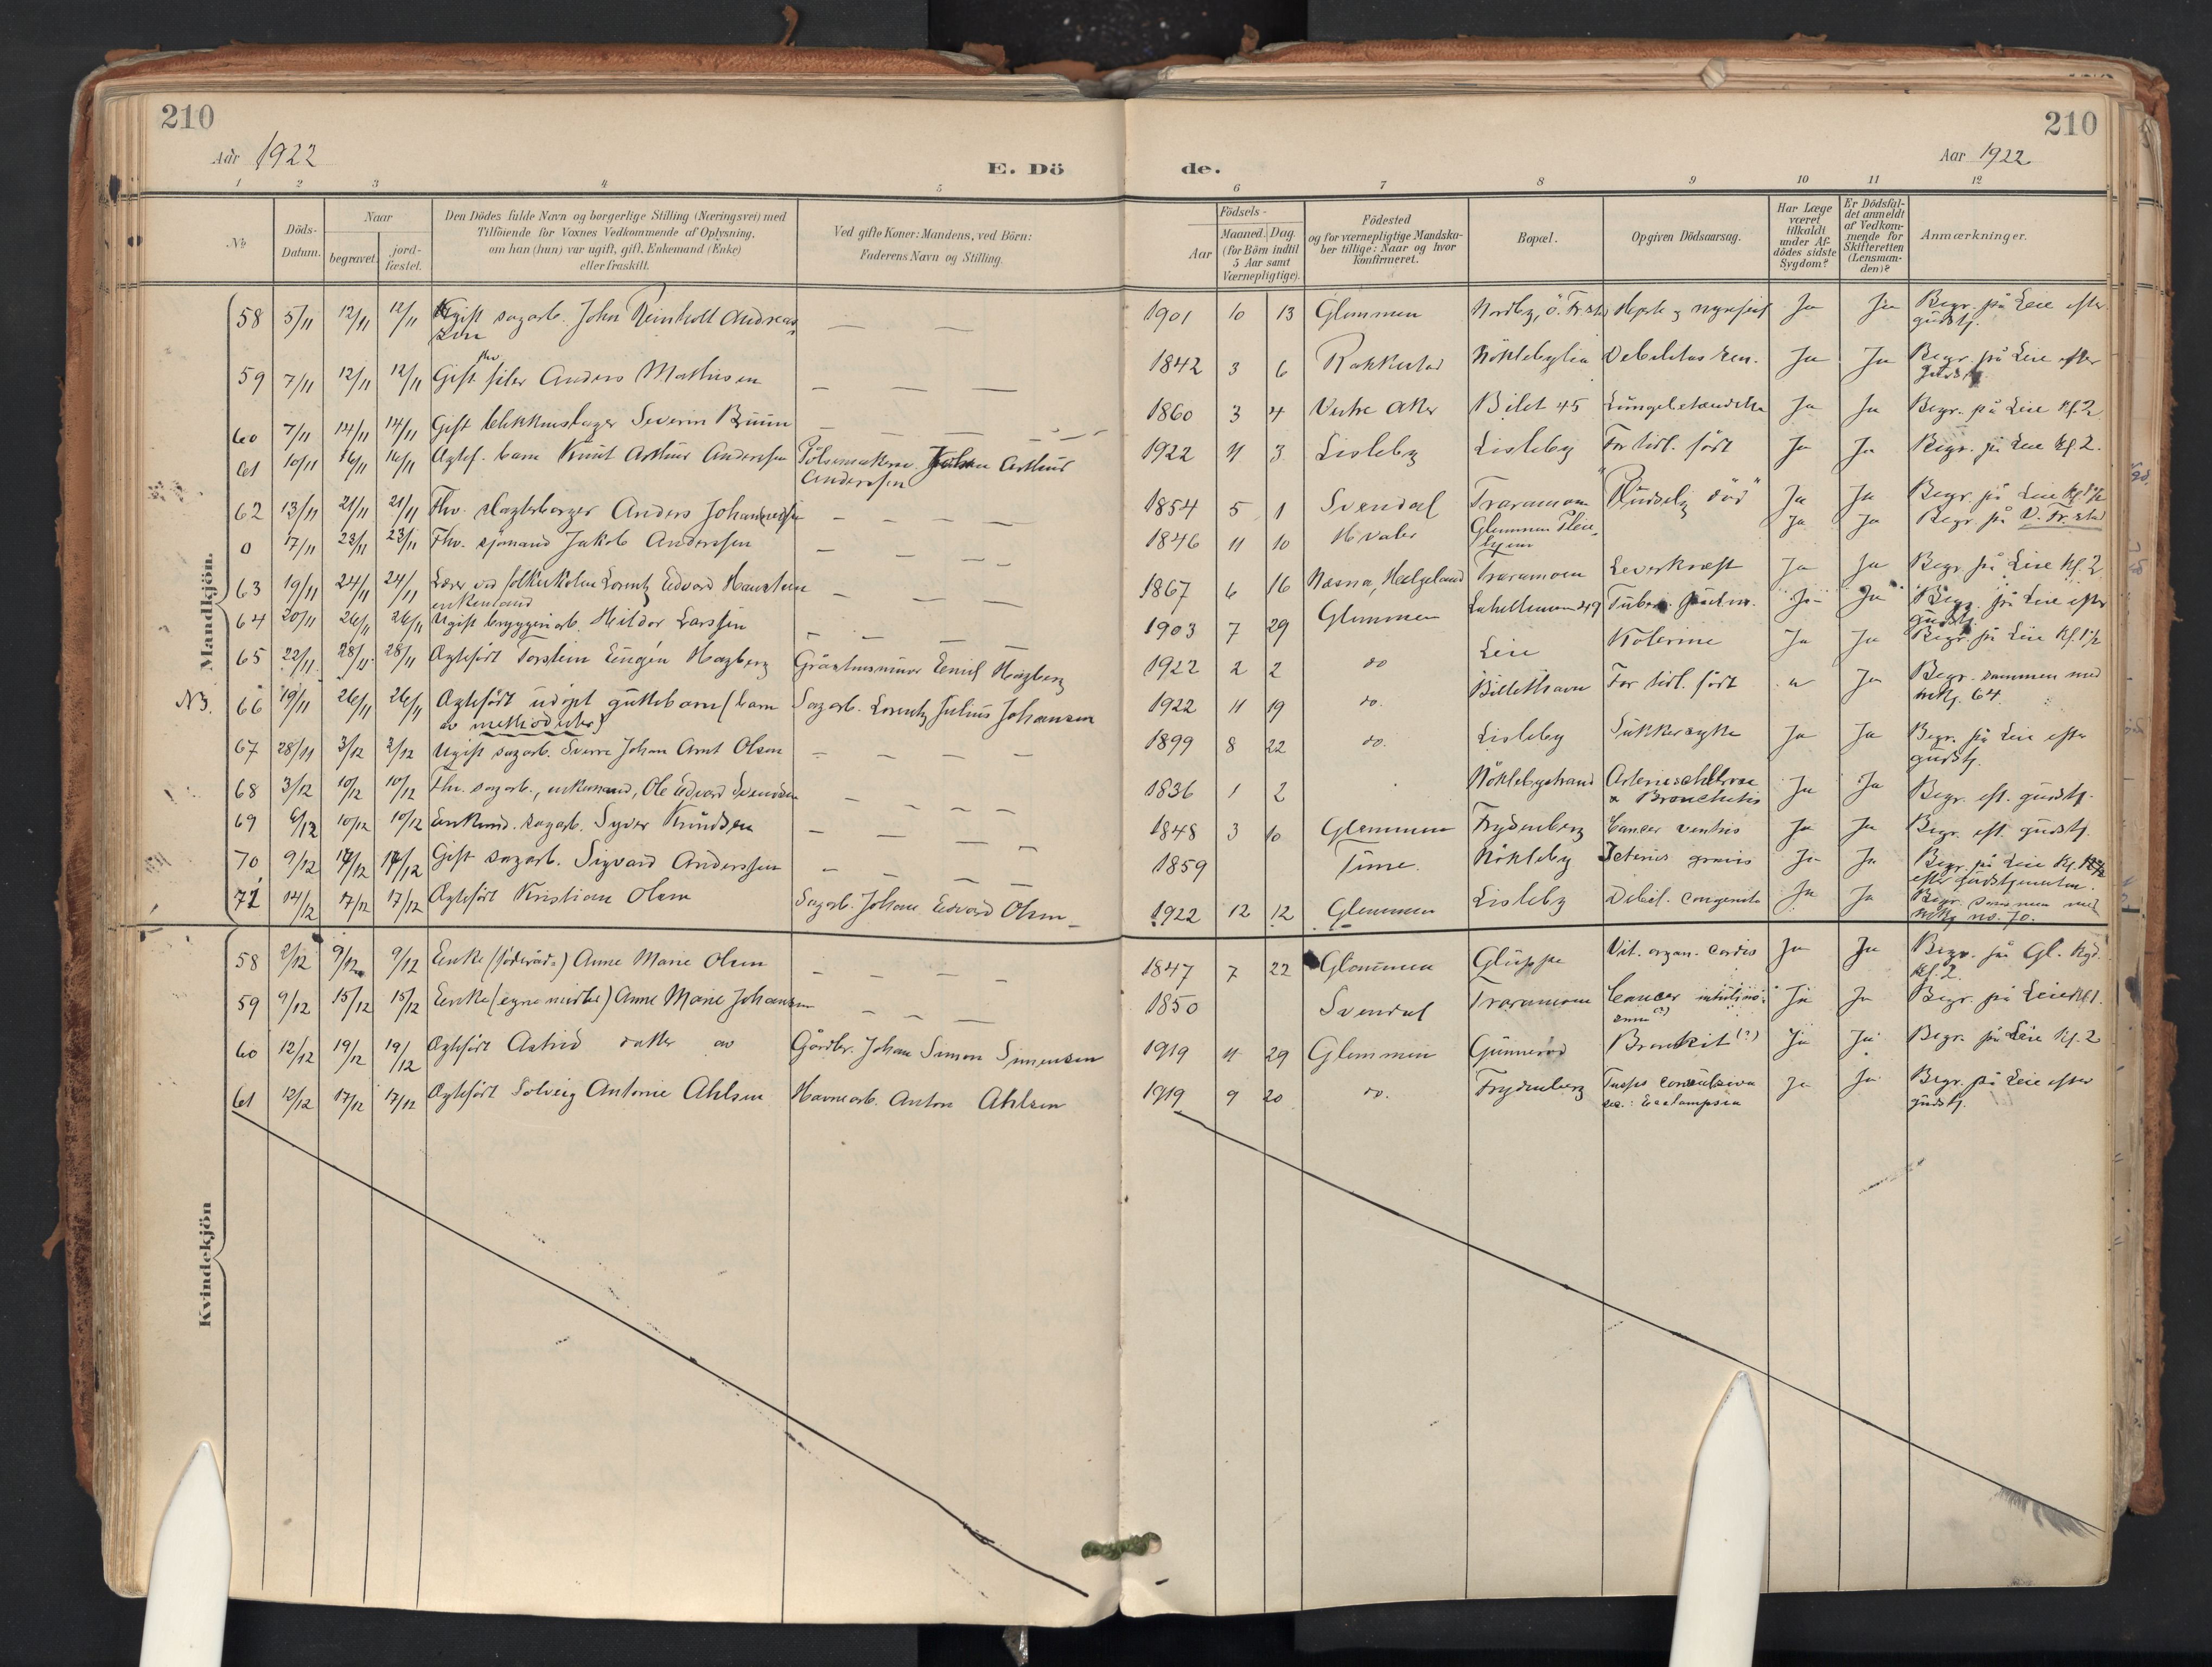 210
210
Aar 1922
E. Dö
de.
Aar 1922
1 2 3 4 5 6 7 8 9 10 11 12
No
Döds-
Datum.
Naar
begravet.
jord-
fæstet.
Den Dödes fulde Navn og borgerlige Stilling (Næringsvei) med
Tilföiende for Voxnes Vedkommende af Oplysning,
om han (hun) var ugift, gift, Enkemand (Enke)
eller fraskilt.
Ved gifte Koner: Mandens, ved Börn:
Faderens Navn og Stilling.
Födsels-
Aar
Maaned. Dag.
(for Börn indtil
5 Aar samt
Værnepligtige).
Födested
og for værnepligtige Mandska-
ber tillige: Naar og hvor
Konfirmeret.
Bopæl.
Opgiven Dödsaarsag.
Har Læge
været
tilkaldt
under Af-
dödes sidste
Sygdom?
Er Dödsfal-
det anmeldt
af Vedkom-
mende for
Skifteretten
(Lensman-
den)?
Anmærkninger.
Mandkjön.
58 5/11 12/11 12/11 Ugift sagarb. John Reinholt Andreas-
sen — — — 1901 10 13 Glemmen Nordby, Ö. Fr.stad Hjerte og nyrefeil Ja Ja Begr. på Leie efter
gudstj.
59 7/11 12/11 12/11 Gift fhv. filer Anders Mathisen — — — 1842 3 6 Rakkestad Nöklebylia Debilitas sen. Ja Ja Begr. på Leie efter
gudstj.
60 7/11 14/11 14/11 Gift blikkenslager Severin Bruun — — — 1860 3 4 Vestre Aker Bilet 45 Lungebetændelse Ja Ja Begr. på Leie kl. 2
61 10/11 16/11 16/11 Ægtef. barn Knut Arthur Anderssen Pölsemaker Johan Arthur
Anderssen 1922 11 3 Lisleby Lisleby For tidl. född Ja Ja Begr. på Leie kl. 2.
62 13/11 21/11 21/11 Fhv. slagterborger Anders Johannessen — — — — 1854 5 1 Svendal Traramoen "Pludselig död" Ja Ja Begr. på Leie kl. 1½
0 17/11 23/11 23/11 Fhv. sjömand Jakob Anderssen — — — 1846 11 10 Hvaler Glemmen Pleie-
hjem Ja Ja Begr. på V. Fr.stad
63 19/11 24/11 24/11 Lærer ved folkeskolen Lorentz Edvard Haustein
enkemand — — — 1867 6 16 Næsna, Helgeland Traramoen Leverkræft Ja Ja Begr. på Leie kl. 2
64 20/11 26/11 26/11 Ugift bryggeriarb. Hildor Larssen — — — 1903 7 29 Glemmen Labelleveien 49 Tuberc. pulm. Ja Ja Begr. på Leie efter
gudstj.
65 22/11 28/11 28/11 Ægtefödt Torstein Eugén Hagberg Gråstensmurer Eenul Hagberg 1922 2 2 do Leie Kolerine Ja Ja Begr. på Leie kl. 1½
NB. 66 19/11 26/11 26/11 Ægtefödt udöpt guttebarn (barn
av methodister) Sagarb. Lorentz Julius Johansen 1922 11 19 do. Bilethavn For tidl. född Ja Begr. sammen med
mkj. 64
67 28/11 3/12 3/12 Ugift sagarb. Sverre Johan Arnt Olsen — — — — 1899 8 22 do. Lisleby Sukkersyke Ja Ja Begr. på Leie efter
gudstj.
68 3/12 10/12 10/12 Fhv. sagarb., enkemand, Ole Edvard Svendsen — — — — 1836 1 2 Nöklebystrand Arteriesclerose
& Bronchitis Ja Ja Begr. eft. gudstj.
69 6/12 10/12 10/12 Enkemd. sagarb. Syver Knudsen — — — — 1848 3 10 Glemmen Frydenberg Cancer ventris Ja Ja Begr. eft. gudstj.
70 9/12 17/12 17/12 Gift sagarb. Sigvard Anderssen — — — — 1859 Tune. Nökleby Icterus gravis Ja Ja Begr. på Leie
efter gudstjenesten.
71 14/12 17/12 17/12 Ægtefödt Kristian Olsen Sagarb. Johan Edvard Olsen 1922 12 12 Glemmen Lisleby Debil. congenita Ja Ja Begr. sammen med
mkj no. 70.
Kvindekjön
58 2/12 9/12 9/12 Enke (föderåd) Anne Marie Olsen — — — — 1847 7 22 Glemmen Gluppe Vit. organ. cordis Ja Ja Begr. på Gl. kgd.
kl. 2.
59 9/12 15/12 15/12 Enke (egne midler) Anne Marie Johansen — — — 1850 Svendal Traramoen Cancer intestino-
rum (?) Ja Ja Begr. på Leie kl. 1.
60 12/12 19/12 19/12 Ægtefödt Astrid datter av Gårdbr. Johan Simon Simensen 1919 11 29 Glemmen Gunneröd Bronkit (?) Ja Ja Begr. på Leie kl. 2
61 12/12 17/12 17/12 Ægtefödt Solveig Antonie Ahlsen Havnearb. Anton Ahlsen 1919 9 20 do. Frydenberg Tussis convulsiva
sec.: Eclampsia Ja Ja Begr. på Leie efter
gudstj.